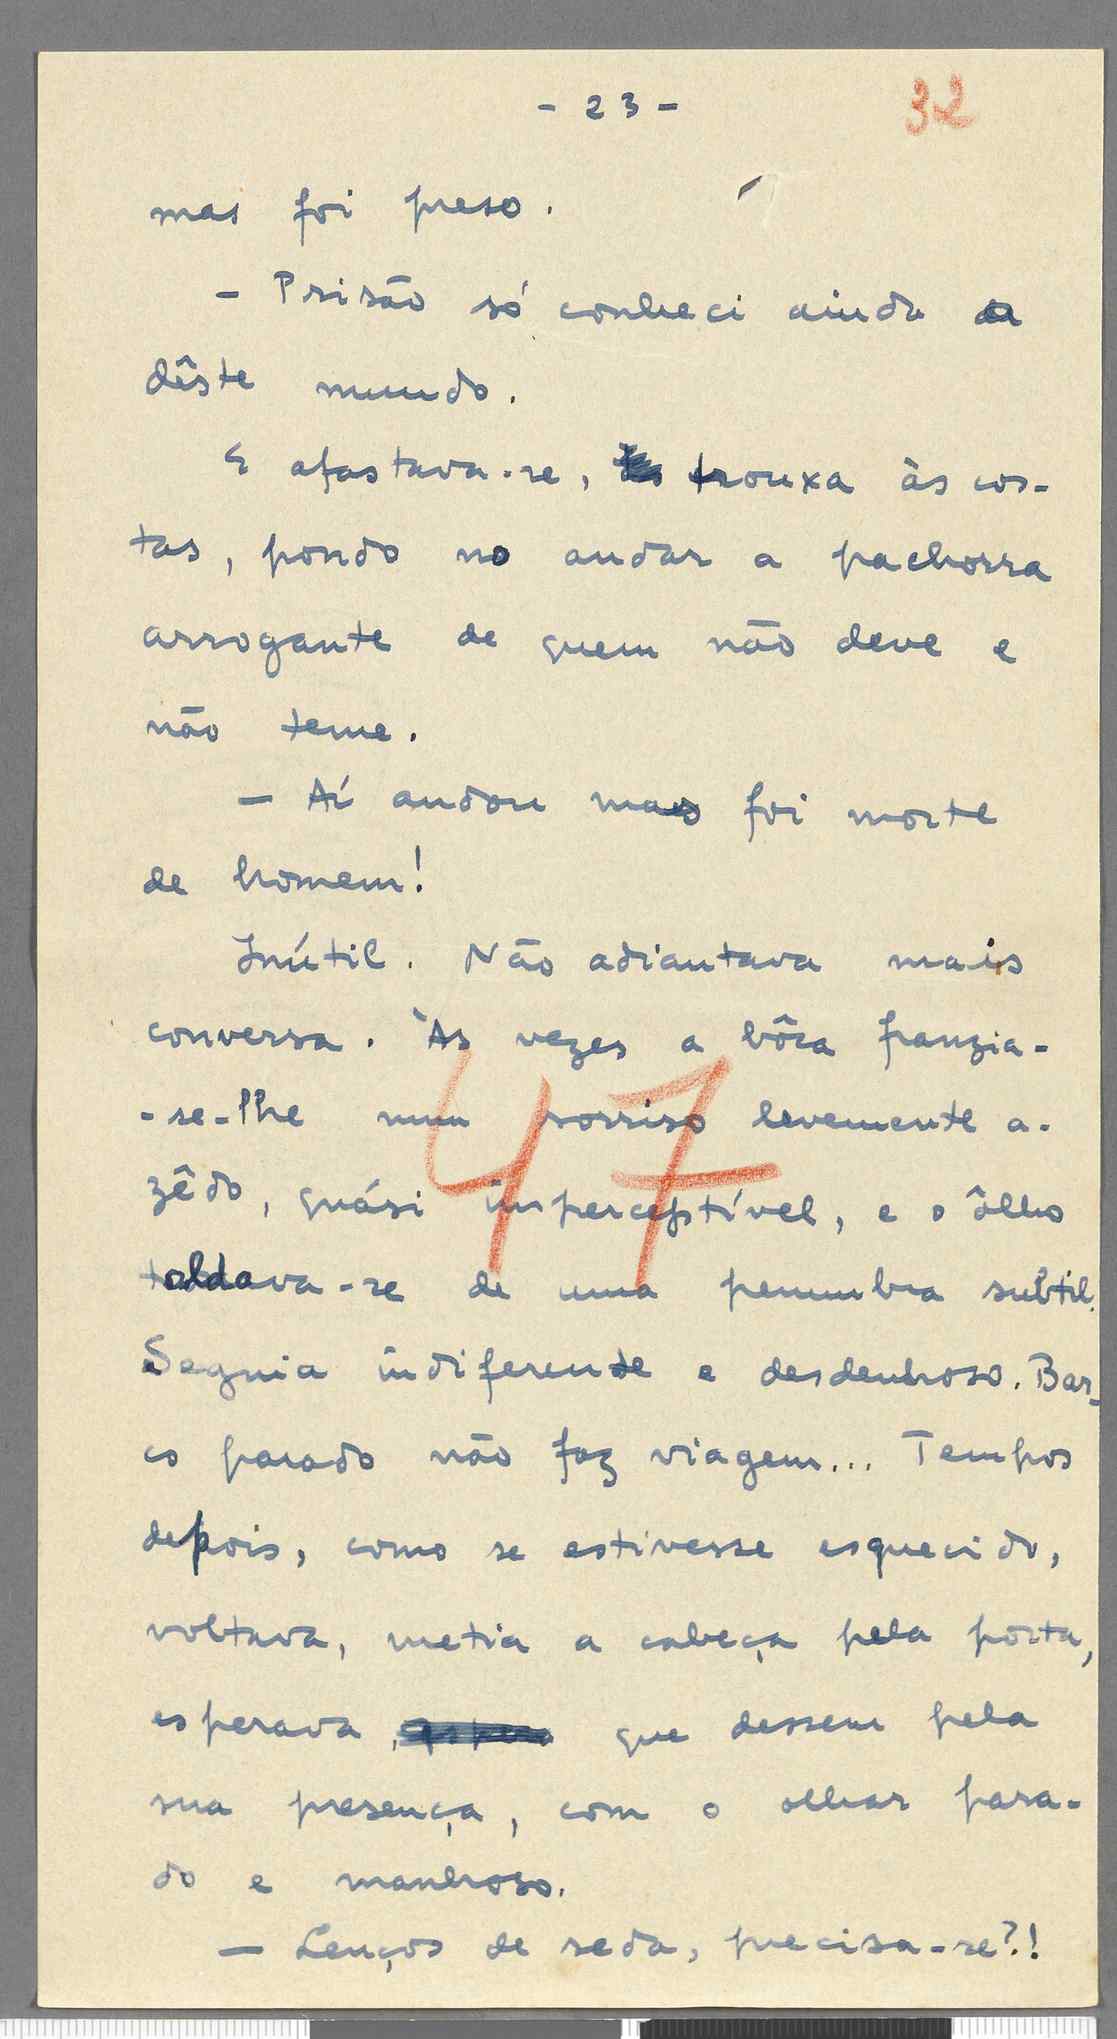 - 23 -
32
mas foi preso.
- Prisão só conheci ainda a
dêste mundo.
E afastava-se, trouxa às cos-
tas, pondo no andar a pachorra
arrogante de quem não deve e
não teme.
- Aí andou mas foi morte
de homem!
Inútil. Não adiantava mais
conversa. Às vezes a bôca franzia-
-se-lhe num sorriso levemente a-
zêdo, quási imperceptível, e o ôlho
47
toldava-se de uma penumbra subtil.
Seguia indiferente e desdenhoso. Bar-
co parado não faz viagem... Tempos
depois, como se estivesse esquecido,
voltava, metia a cabeça pela porta,
esperava que dessem pela
sua presença, com o olhar para-
do e manhoso.
- Lenços de seda, precisa-se?!